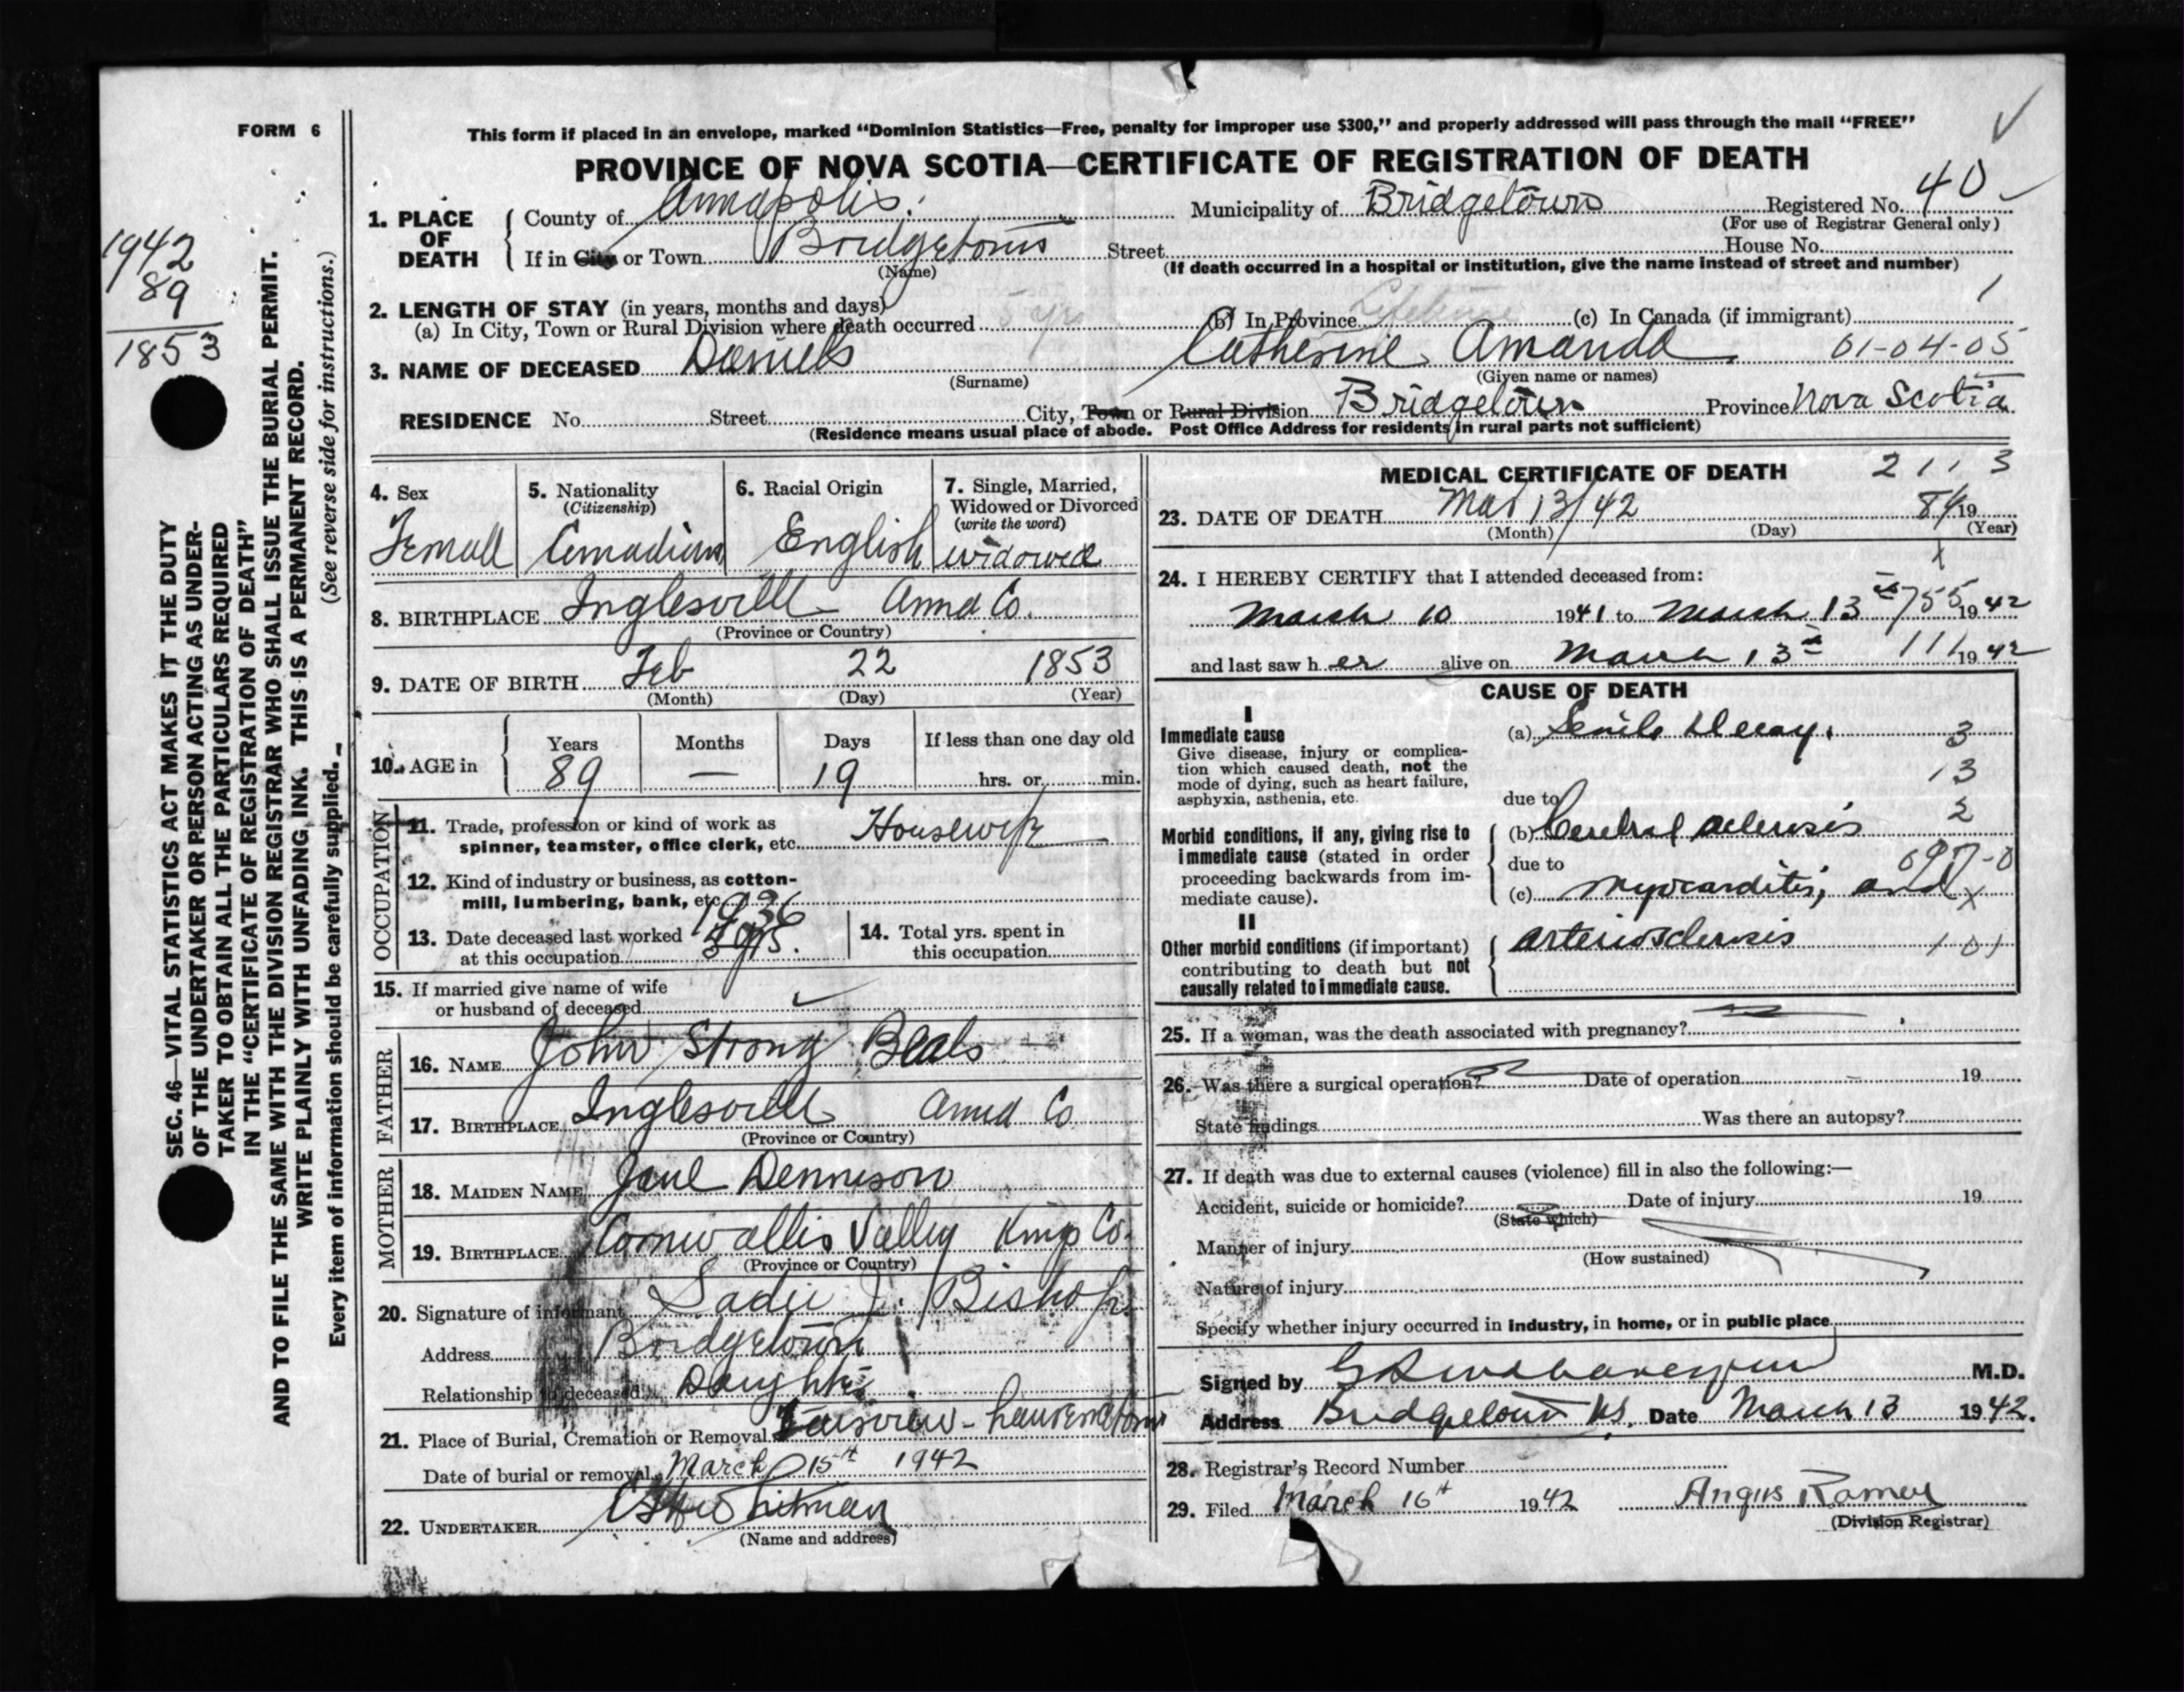 FORM 6
This form if placed in an envelope, marked "Dominion Statistics—Free, penalty for improper use $300," and properly addressed will pass through the mail "FREE"
PROVINCE OF NOVA SCOTIA—CERTIFICATE OF REGISTRATION OF DEATH
1942
89
1853
SEC. 46—VITAL STATISTICS ACT MAKES IT THE DUTY
OF THE UNDERTAKER OR PERSON ACTING AS UNDER-
TAKER TO OBTAIN ALL THE PARTICULARS REQUIRED
IN THE "CERTIFICATE OF REGISTRATION OF DEATH"
AND TO FILE THE SAME WITH THE DIVISION REGISTRAR WHO SHALL ISSUE THE BURIAL PERMIT.
WRITE PLAINLY WITH UNFADING INK. THIS IS A PERMANENT RECORD.
(See reverse side for instructions.)
Every item of information should be carefully supplied.
1. PLACE OF DEATH
County of Annapolis. Municipality of Bridgetown Registered No. 40
(For use of Registrar General only)
If in City or Town Bridgetown Street House No.
(Name) (If death occurred in a hospital or institution, give the name instead of street and number)
2. LENGTH OF STAY (in years, months and days)
(a) In City, Town or Rural Division where death occurred 5 yrs (b) In Province Lifetime (c) In Canada (if immigrant) 1
3. NAME OF DECEASED Daniels Catherine Amanda 01-04-05
(Surname) (Given name or names)
RESIDENCE No. Street City, Town or Rural Division Bridgetown Province Nova Scotia
(Residence means usual place of abode. Post Office Address for residents in rural parts not sufficient)
4. Sex
Female
5. Nationality
(Citizenship)
Canadian
6. Racial Origin
English
7. Single, Married,
Widowed or Divorced
(write the word)
widowed
8. BIRTHPLACE Inglesville Anna Co.
(Province or Country)
9. DATE OF BIRTH Feb 22 1853
(Month) (Day) (Year)
10. AGE in Years Months Days If less than one day old
89 — 19 hrs. or min.
OCCUPATION
11. Trade, profession or kind of work as
spinner, teamster, office clerk, etc. Housewife
12. Kind of industry or business, as cotton-
mill, lumbering, bank, etc.
13. Date deceased last worked 1936
at this occupation 5 yrs.
14. Total yrs. spent in
this occupation
15. If married give name of wife
or husband of deceased
FATHER
16. NAME John Strong Beals
17. BIRTHPLACE Inglesville Anna Co
(Province or Country)
MOTHER
18. MAIDEN NAME Jane Dennison
19. BIRTHPLACE Cornwallis Valley Kings Co.
(Province or Country)
20. Signature of informant Sadie J. Bishop
Address Bridgetown
Relationship to deceased Daughter
21. Place of Burial, Cremation or Removal Fairview - Lawrencetown
Date of burial or removal March 15th 1942
22. UNDERTAKER Whitman
(Name and address)
MEDICAL CERTIFICATE OF DEATH 2 1 1 3
23. DATE OF DEATH Mar 13/42 89 19
(Month) (Day) (Year)
24. I HEREBY CERTIFY that I attended deceased from:
March 10 1941 to March 13 755 1942
and last saw her alive on March 13 111 1942
CAUSE OF DEATH
I
Immediate cause
Give disease, injury or complica-
tion which caused death, not the
mode of dying, such as heart failure,
asphyxia, asthenia, etc.
(a) Senile Decay. 3
13
due to 2
Morbid conditions, if any, giving rise to
immediate cause (stated in order
proceeding backwards from im-
mediate cause).
(b) Cerebral sclerosis
due to
(c) myocarditis, and
II
Other morbid conditions (if important)
contributing to death but not
causally related to immediate cause.
arteriosclerosis 101
25. If a woman, was the death associated with pregnancy?
26. Was there a surgical operation? Date of operation 19
State findings Was there an autopsy?
27. If death was due to external causes (violence) fill in also the following:—
Accident, suicide or homicide? Date of injury 19
(State which)
Manner of injury
(How sustained)
Nature of injury
Specify whether injury occurred in industry, in home, or in public place
Signed by M.D.
Address Bridgetown NS. Date March 13 1942.
28. Registrar's Record Number
29. Filed March 16th 1942 Angus Ramey
(Division Registrar)